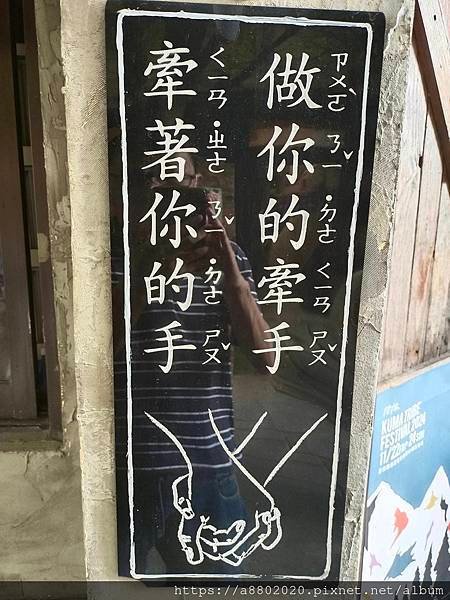 做你的牽手
ㄗㄨㄛˋ ㄋㄧˇ ˙ㄉㄜ ㄑㄧㄢ ㄕㄡˇ
牽著你的手
ㄑㄧㄢ ˙ㄓㄜ ㄋㄧˇ ˙ㄉㄜ ㄕㄡˇ
KUMA
FESTIVAL 2024
11/22 24 SUN
https://a8802020.pixnet.net/album